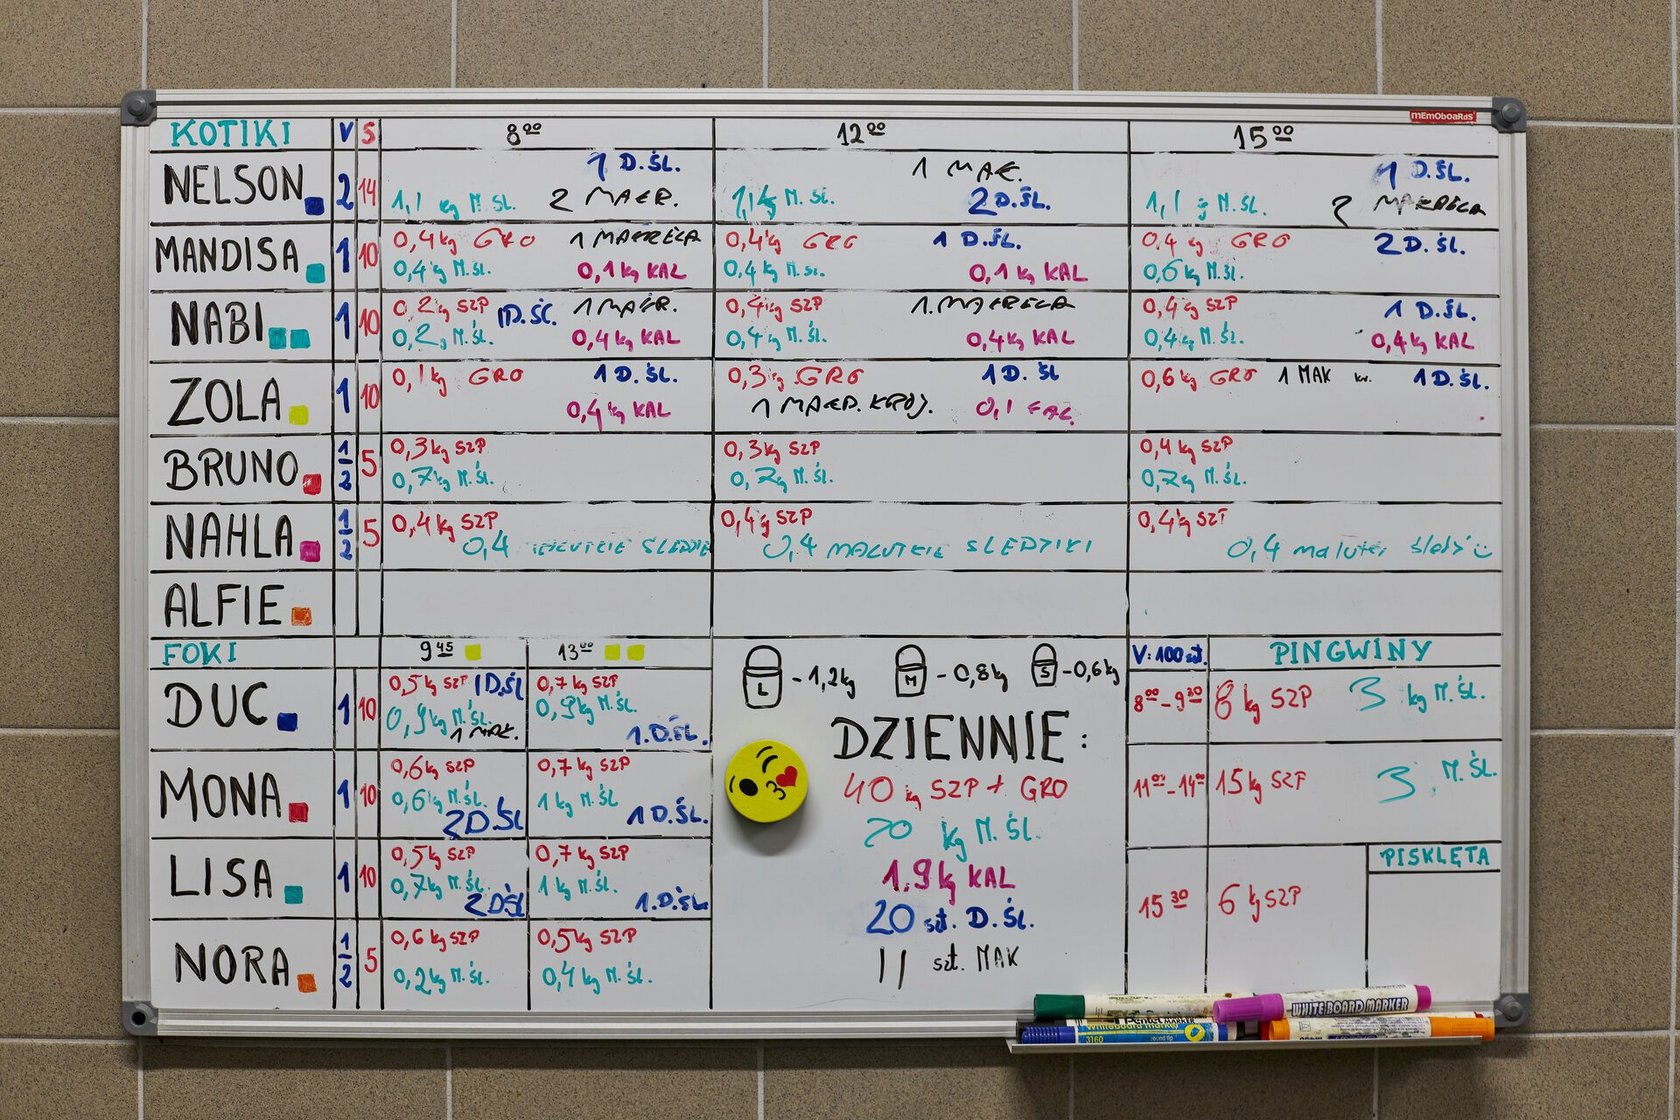 MEMOBOARDS
KOTIKI V S 8⁰⁰ 12⁰⁰ 15⁰⁰
NELSON 2 14
1 D.ŚL.
1,1 kg M.ŚL. 2 MAKR.
1 MAK.
1,4 kg M.ŚL. 2 D.ŚL.
1 D.ŚL.
1,1 kg M.ŚL. 2 MAKRELA
MANDISA 1 10
0,4 kg GRO 1 MAKRELA
0,4 kg M.ŚL. 0,1 kg KAL
0,4 kg GRO 1 D.ŚL.
0,4 kg M.ŚL. 0,1 kg KAL
0,4 kg GRO 2 D.ŚL.
0,6 kg M.ŚL.
NABI 1 10
0,2 kg SZP 1D.ŚL. 1 MAKR.
0,2 M.ŚL. 0,4 kg KAL
0,4 kg SZP 1.MAKRELA
0,4 kg M.ŚL. 0,4 kg KAL
0,4 kg SZP 1 D.ŚL.
0,4 kg M.ŚL. 0,4 kg KAL
ZOLA 1 10
0,1 kg GRO 1 D.ŚL.
0,4 kg KAL
0,3 kg GRO 1 D.ŚL
1 0,1 KAL
0,6 kg GRO 1 MAK 1 D.ŚL.
BRUNO 1/2 5
0,3 kg SZP
0,7 kg M.ŚL.
0,3 kg SZP
0,7 kg M.ŚL.
0,4 kg SZP
0,7 kg M.ŚL.
NAHLA 1/2 5
0,4 kg SZP
0,4 MALUTKIE ŚLEDZIE
0,4 kg SZP
0,4 MALUTKIE SLEDZIKI
0,4 kg SZP
0,4
ALFIE
FOKI 9⁴⁵ 13⁰⁰
DUC 1 10
0,5 kg SZP 1D.ŚL
0,9 kg M.ŚL.
1 MAK.
0,7 kg SZP
0,9 kg M.ŚL.
1.D.ŚL.
MONA 1 10
0,6 kg SZP
0,6 kg M.ŚL.
2D.ŚL
0,7 kg SZP
1 kg M.ŚL.
1 D.ŚL.
LISA 1 10
0,5 kg SZP
0,7 kg M.ŚL.
2 D.ŚL
0,7 kg SZP
1 kg M.ŚL.
1.D.ŚL.
NORA 1/2 5
0,6 kg SZP
0,2 kg M.ŚL.
0,5 kg SZP
0,4 kg M.ŚL.
L - 1,2 kg M - 0,8 kg S - 0,6 kg
DZIENNIE:
40 kg SZP + GRO
20 kg M.ŚL.
1,9 kg KAL
20 szt. D.ŚL.
11 szt. MAK
V: 100 szt. PINGWINY
8⁰⁰-9³⁰ 8 kg SZP 3 kg M.ŚL.
11⁰⁰-14⁰⁰ 15 kg SZP 3 M.ŚL.
PISKLĘTA
15³⁰ 6 kg SZP
WHITE BOARD MARKER
Pentel MARKER
Whiteboard marker
3160 round tip